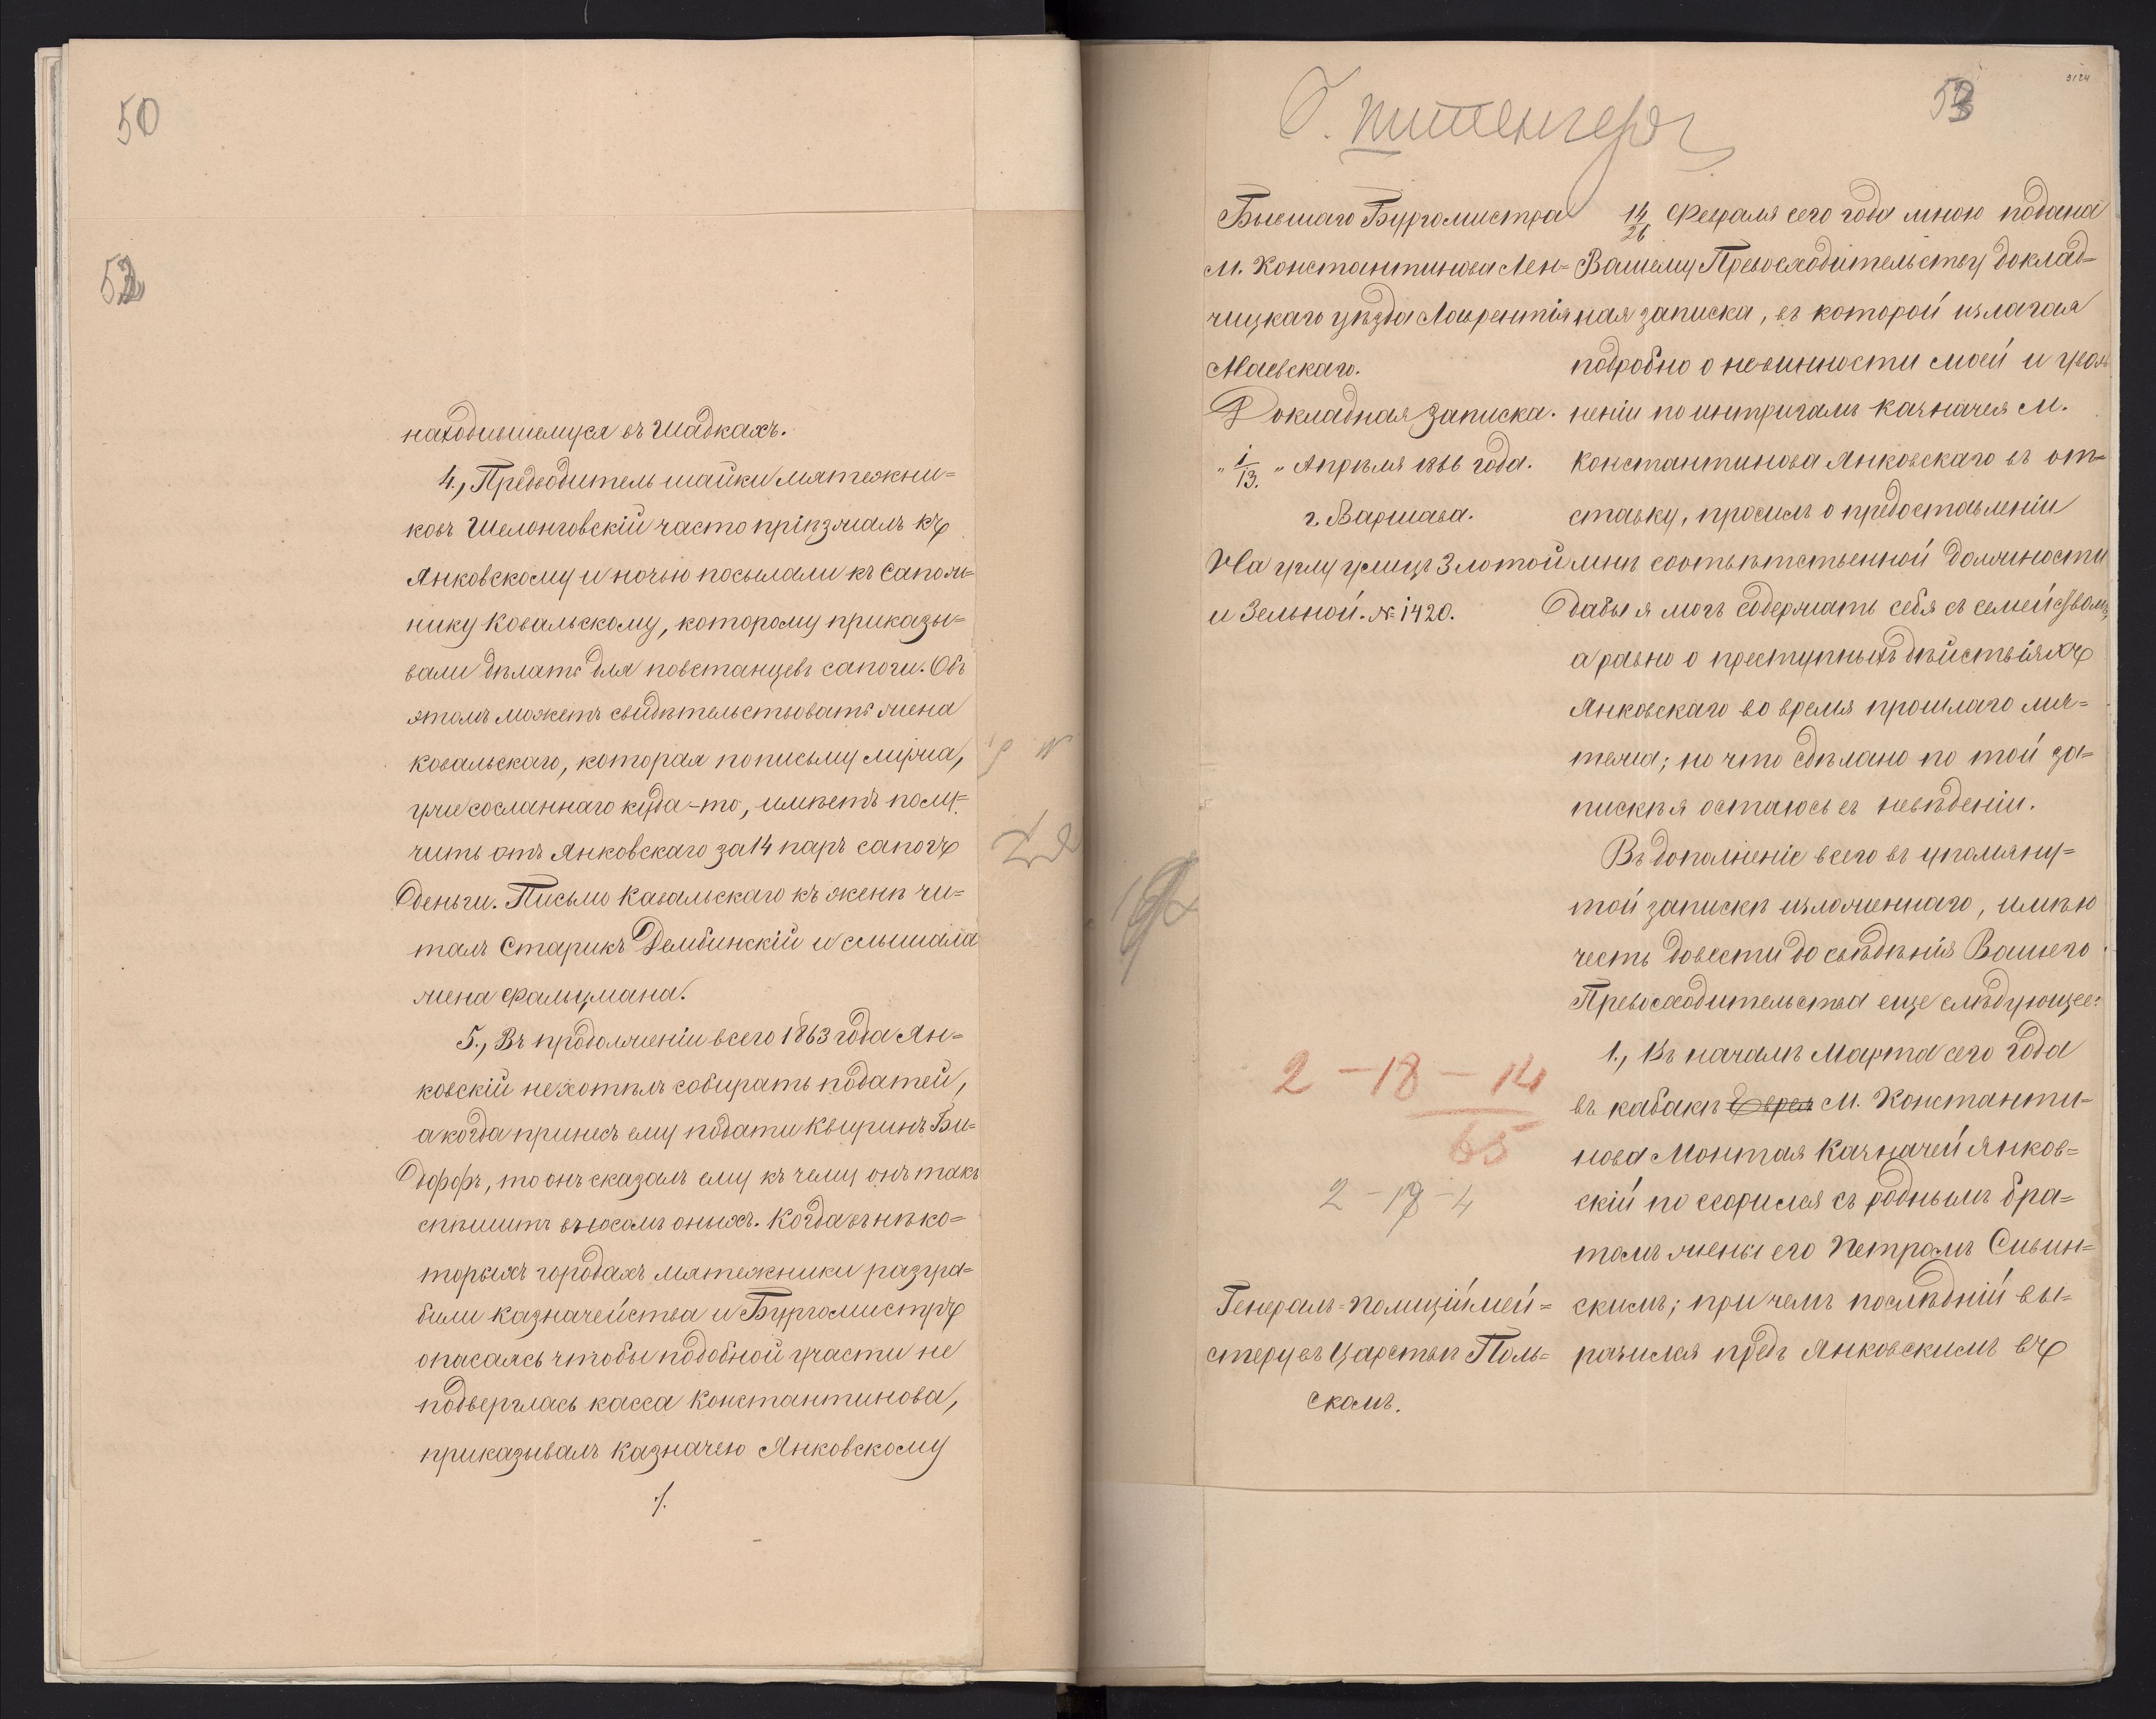 50
52
находившемуся въ Шадкахъ.
4., Предводитель шайки мятежни=
ковъ Шелонговскій часто пріѣзжалъ къ
Янковскому и ночью посылали къ сапож=
нику Ковальскому, которому приказы=
вали дѣлать для повстанцевъ сапоги. Объ
этомъ можетъ свидѣтельствовать жена
Ковальскаго, которая по письму мужа,
уже сосланнаго куда-то, имѣетъ полу=
чить отъ Янковскаго за 14 паръ сапогъ
деньги. Письмо Кавальскаго къ женѣ чи=
талъ старикъ Дембинскій и слышала
жена Фальцмана.
5., Въ продолженіи всего 1863 года Ян=
ковскій не хотѣлъ собирать податей,
а когда принесъ ему подати Квиринъ Би=
дофъ, то онъ сказалъ ему къ чему онъ такъ
спѣшитъ взносомъ оныхъ. Когда въ нѣко=
торыхъ городахъ мятежники разгра=
били казначейства и Бургомистръ
опасаясь чтобы подобной участи не
подверглась касса Константинова,
приказывалъ казначею Янковскому
/.
53
3124
Бывшаго Бургомистра
М. Константинова Лен=
чицкаго уѣзда Лаврентія
Маевскаго.
Докладная записка.
" 1/13. " Апрѣля 1866 года.
г. Варшава.
На углу улицъ Злотой
и Зельной. № 1420.
2 - 18 - 14
65
2 - 18 - 4
Генералъ-Полиціймей=
стеру въ Царствѣ Поль=
скомъ.
14/26 Февраля сего года мною подана
Вашему Превосходительству доклад=
ная записка, въ которой излагая
подробно о невинности моей и уволь
неніи по интригамъ казначея М.
Константинова Янковскаго въ от=
ставку, просилъ о предоставленіи
мнѣ соотвѣтственной должности
дабы я могъ содержать себя съ семействомъ,
а равно о преступныхъ дѣйствіяхъ
Янковскаго во время прошлаго мя=
тежа; но что сдѣлано по той за=
пискѣ я остаюсь въ невѣденіи.
Въ дополненіе всего въ упомяну=
той запискѣ изложеннаго, имѣю
честь довести до свѣдѣнія Вашего
Превосходительства еще слѣдующее:
1., Въ началѣ Марта сего года
въ кабакѣ Еврея М. Константи=
нова Монтая Казначей Янков=
скій по ссорился съ роднымъ бра=
томъ жены его Петромъ Сивин=
скимъ; при чемъ послѣдній вы=
разился предъ Янковскимъ въ